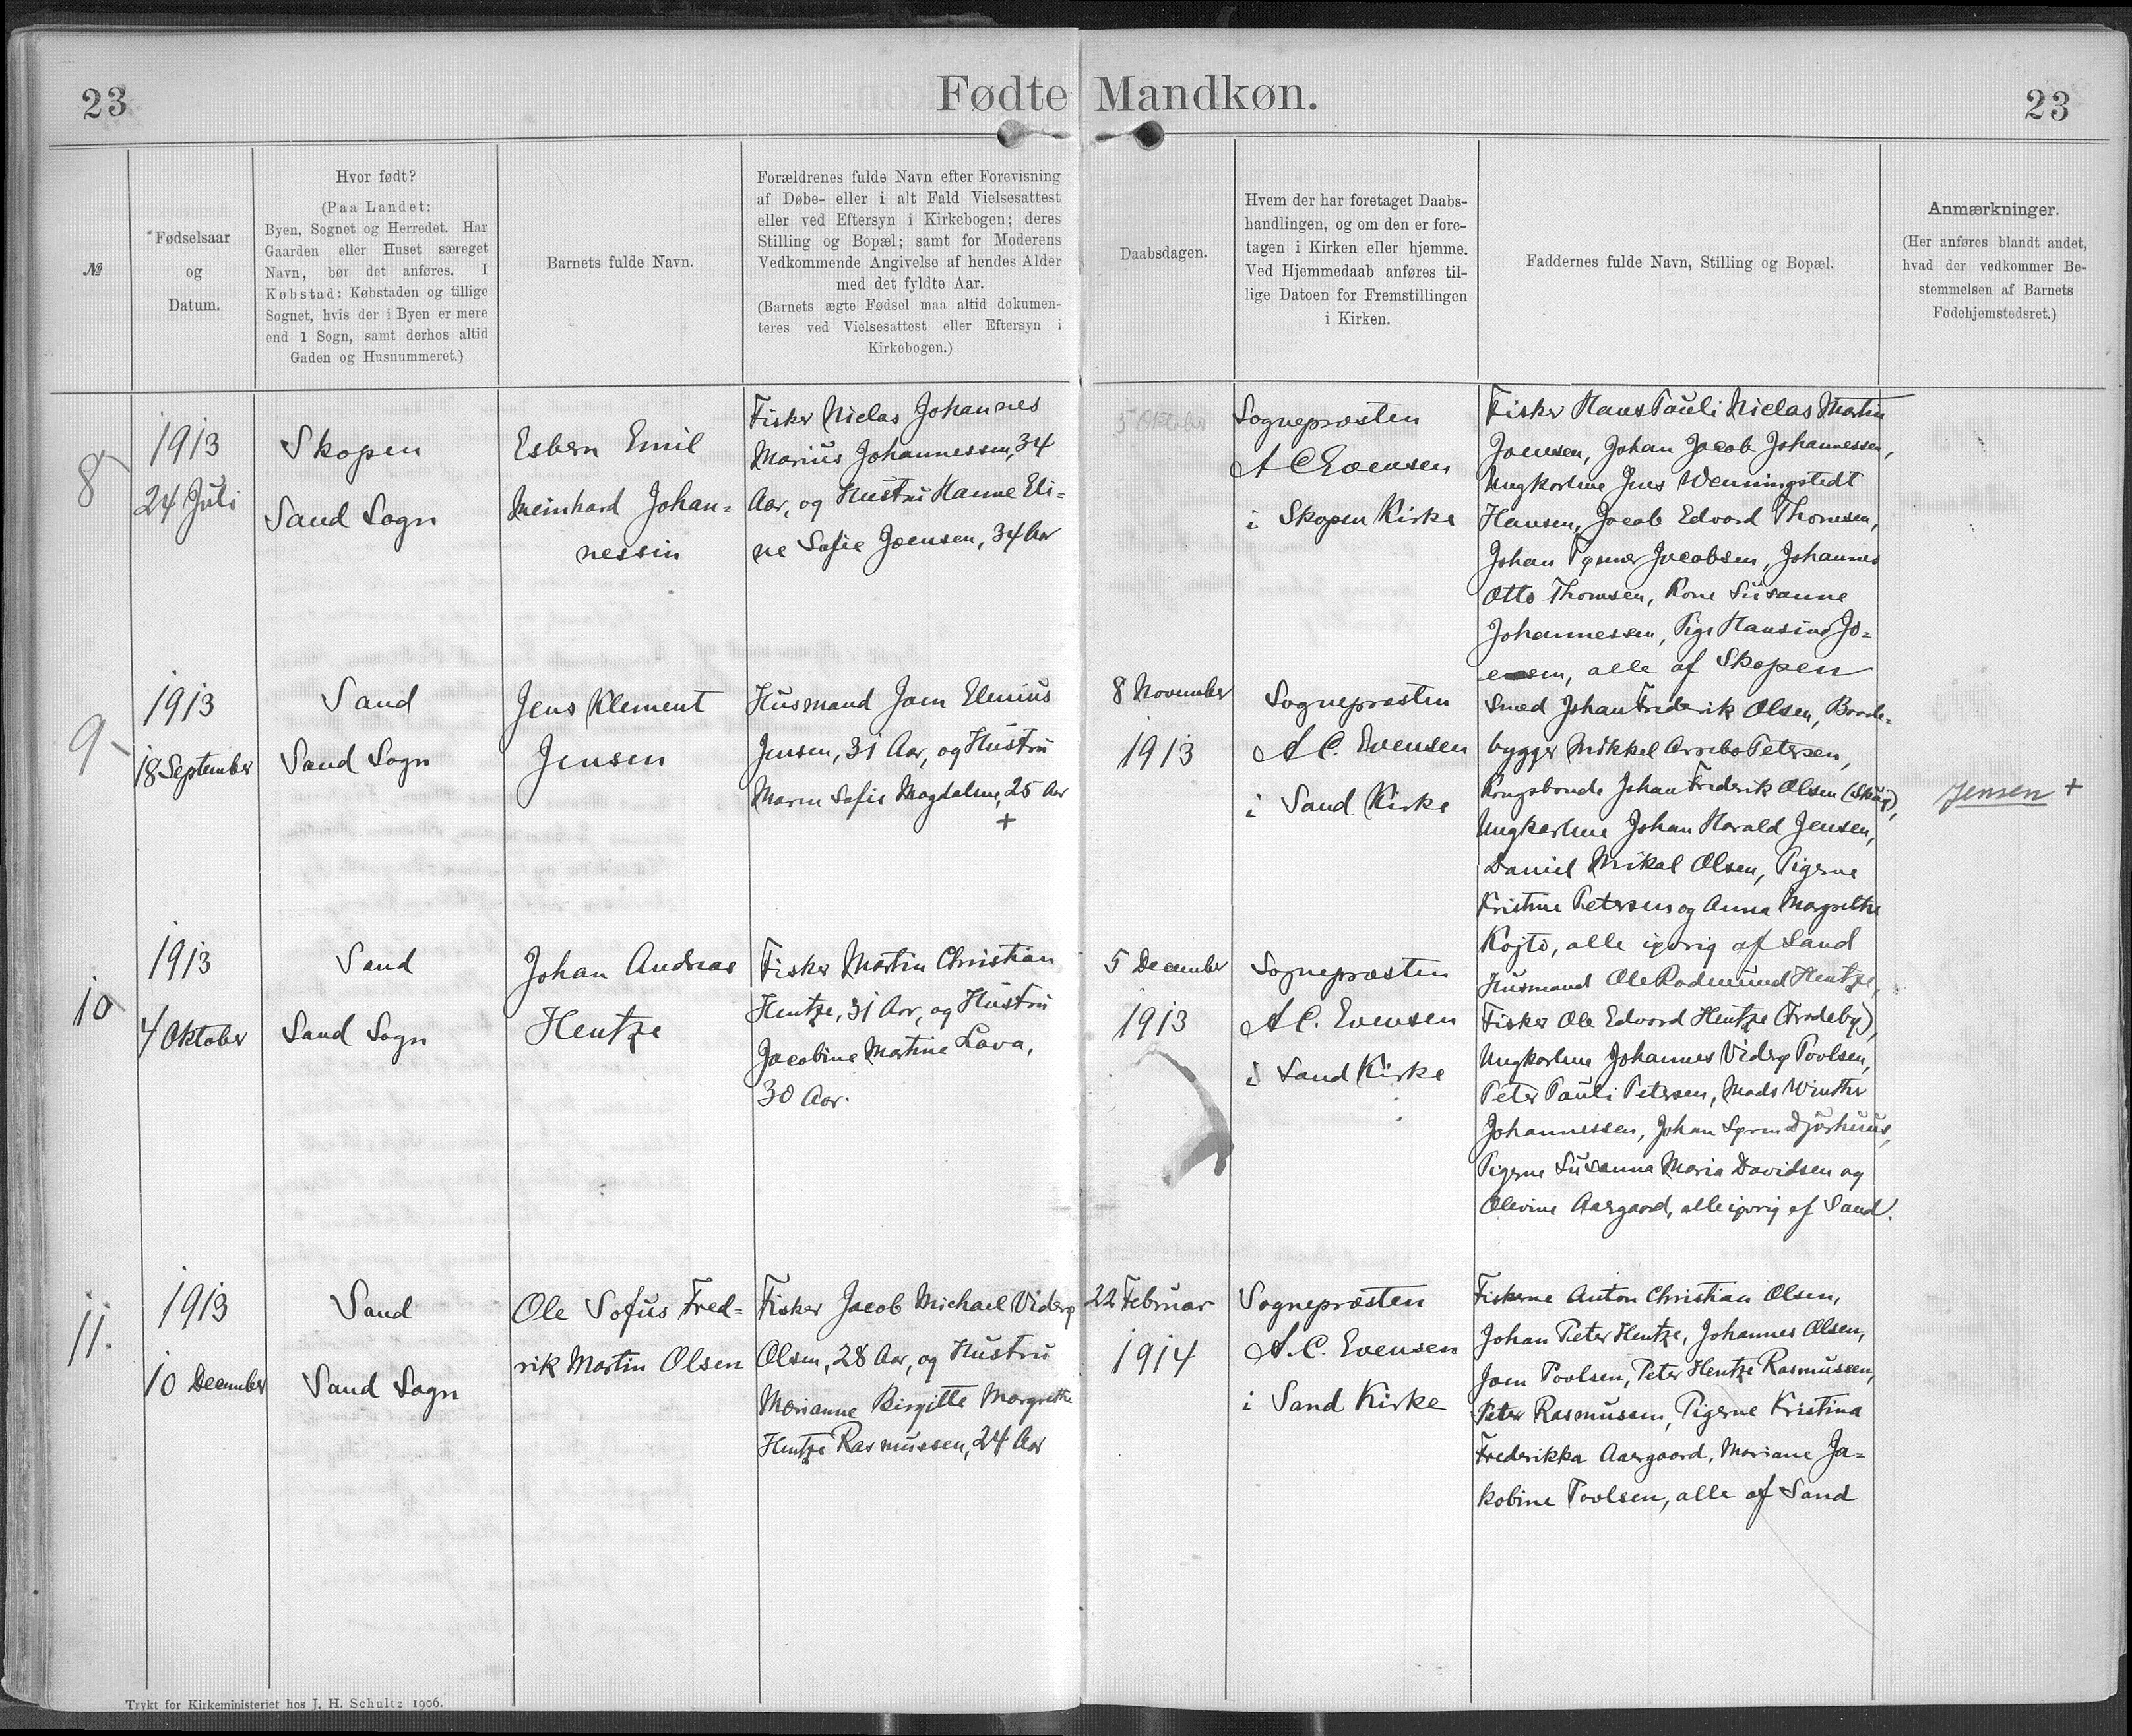 23
Fødte Mandkøn.
23
№
Fødselsaar
og
Datum.
Hvor født?
(Paa Landet:
Byen, Sognet og Herredet. Har
Gaarden eller Huset særeget
Navn, bør det anføres. I
Købstad: Købstaden og tillige
Sognet, hvis der i Byen er mere
end 1 Sogn, samt derhos altid
Gaden og Husnummeret.)
Barnets fulde Navn.
Forældrenes fulde Navn efter Forevisning
af Døbe- eller i alt Fald Vielsesattest
eller ved Eftersyn i Kirkebogen; deres
Stilling og Bopæl; samt for Moderens
Vedkommende Angivelse af hendes Alder
med det fyldte Aar.
(Barnets ægte Fødsel maa altid dokumen-
teres ved Vielsesattest eller Eftersyn i
Kirkebogen.)
Daabsdagen.
Hvem der har foretaget Daabs-
handlingen, og om den er fore-
tagen i Kirken eller hjemme.
Ved Hjemmedaab anføres til-
lige Datoen for Fremstillingen
i Kirken.
Faddernes fulde Navn, Stilling og Bopæl.
Anmærkninger.
(Her anføres blandt andet,
hvad der vedkommer Be-
stemmelsen af Barnets
Fødehjemstedsret.)
8
1913
24 Juli
Skopen
Sand Sogn
Esbern Emil
Meinhard Johan-
nessen
Fisker Niclas Johannes
Marius Johannessen, 34
Aar, og Hustru Hanne Eli-
ne Sofie Joensen, 34 Aar
5 Oktober
Sognepræsten
A C Evensen
i Skopen Kirke
Fisker Hans Pauli Niclas Martin
Joensen, Johan Jacob Johannessen,
Ungkarlene Jens Wenningstedt
Hansen, Jacob Edvard Thomsen,
Johan Jacobsen, Johannes
Otto Thomsen, Kone Susanne
Johannessen, Pige Hansine Jo-
ensen, alle af Skopen
9
1913
18 September
Sand
Sand Sogn
Jens Klement
Jensen
Husmand Joen Elenius
Jensen, 31 Aar, og Hustru
Maren Sofie Magdalene, 25 Aar
+
8 November
1913
Sognepræsten
A C. Evensen
i Sand Kirke
Smed Johan Frederik Olsen, Baade-
bygger Mikkel Arrebo Petersen,
Kongsbonde Johan Frederik Olsen (Skùg),
Ungkarlene Johan Harald Jensen,
Daniel Mikal Olsen, Pigerne
Kristine Petersen og Anna Margrethe
Kojto, alle iøvrig af Sand
Jensen +
10
1913
4 Oktober
Sand
Sand Sogn
Johan Andreas
Hentze
Fisker Martin Christian
Hentze, 31 Aar, og Hustru
Jacobine Martine Lava,
30 Aar.
5 December
1913
Sognepræsten
A C. Evensen
i Sand Kirke
Husmand Ole Rodmund Hentze,
Fisker Ole Edvard Hentze (Trødeby),
Ungkarlene Johannes Viderø Poulsen,
Peter Pauli Petersen, Mads Winther
Johannessen, Johan Søren Djórhuus,
Pigerne Susanna Maria Davidsen og
Olevine Aargaard, alle iøvrig af Sand.
11.
1913
10 December
Sand
Sand Sogn
Ole Sofus Fred-
rik Martin Olsen
Fisker Jacob Michael Viderø
Olsen, 28 Aar, og Hustru
Marianne Birgitte Margrethe
Hentze Rasmussen, 24 Aar
22 Februar
1914
Sognepræsten
A. C. Evensen
i Sand Kirke
Fiskerne Anton Christian Olsen,
Johan Peter Hentze, Johannes Olsen,
Joen Poulsen, Peter Hentze Rasmussen,
Peter Rasmussen, Pigerne Kristina
Frederikka Aargaard, Mariane Ja-
kobine Poulsen, alle af Sand
Trykt for Kirkeministeriet hos J. H. Schultz 1906.